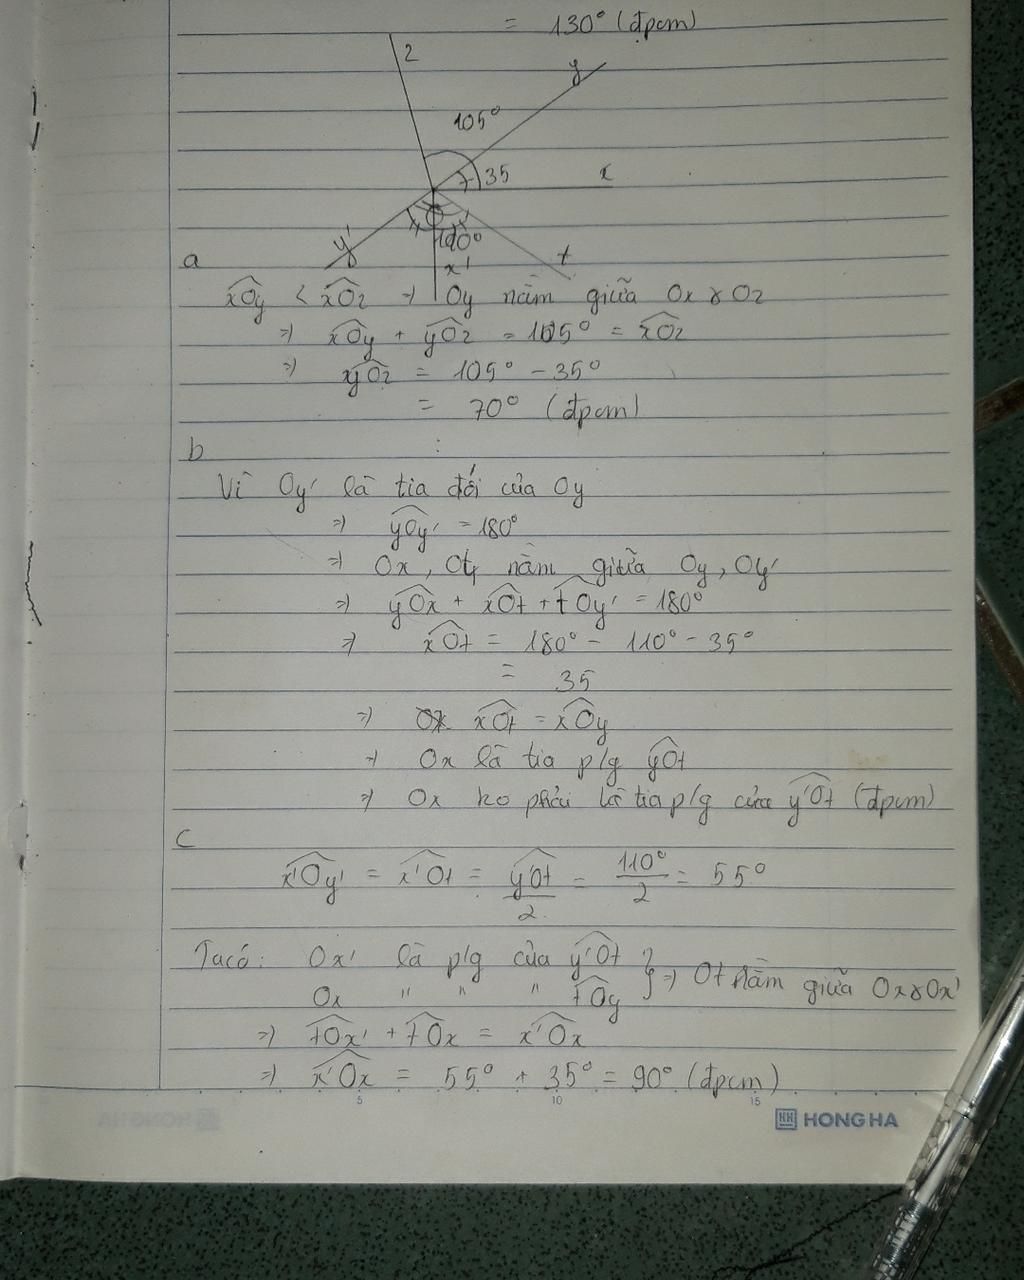 = 130° (đpcm)
z
y
105°
35
x
y'
110°
x'
t
a
xOy < xOz ⇒ Oy nằm giữa Ox & Oz
⇒ xOy + yOz = 105° = xOz
⇒ yOz = 105° - 35°
= 70° (đpcm)
b
Vì Oy' là tia đối của Oy
⇒ yOy' = 180°
⇒ Ox, Ot nằm giữa Oy, Oy'
⇒ yOx + xOt + tOy' = 180°
⇒ xOt = 180° - 110° - 35°
= 35
⇒ xOt = xOy
⇒ Ox là tia p/g yOt
⇒ Ox ko phải là tia p/g của y'Ot (đpcm)
c
x'Oy' = x'Ot = y'Ot/2 = 110°/2 = 55°
Ta có: Ox' là p/g của y'Ot } ⇒ Ot nằm giữa Ox & Ox'
Ox " " " tOy
⇒ tOx' + tOx = x'Ox
⇒ x'Ox = 55° + 35° = 90° (đpcm)
5 10 15
HONG HA